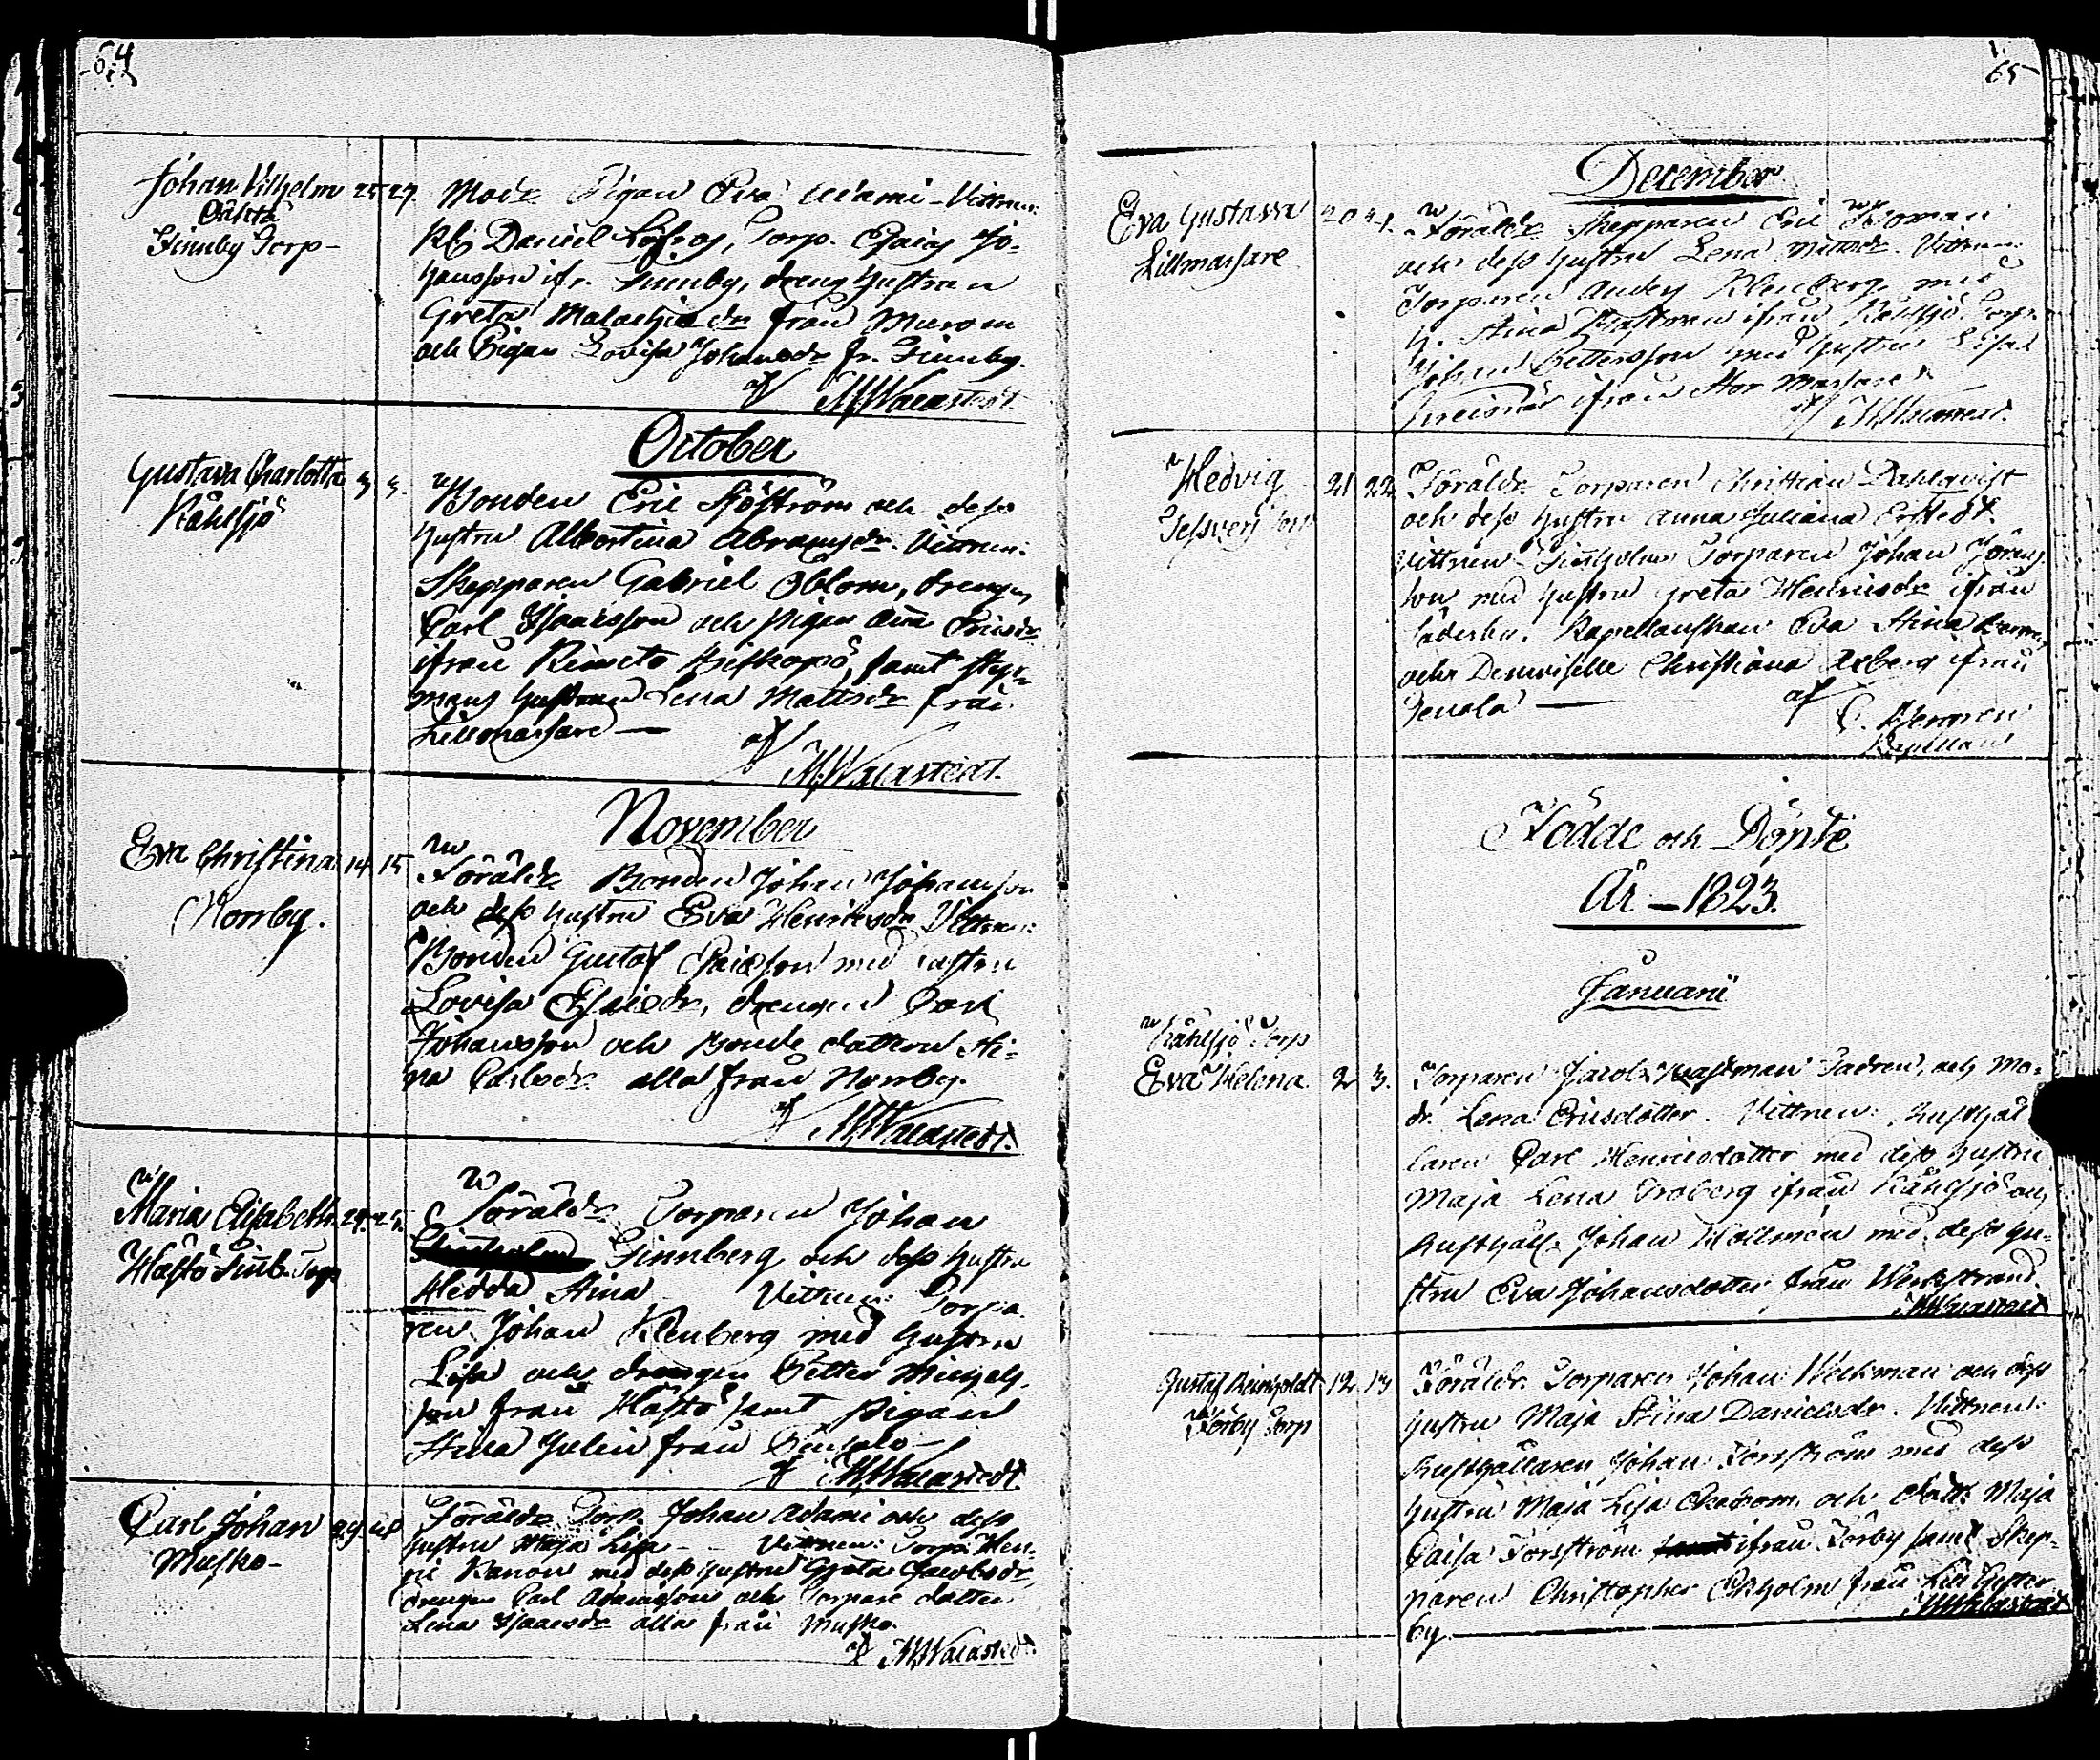 64
Johan Vilhelm 25 27.
Oäkta
Finnby Torp
Modr. Pigan Eva Adami - Vittnen:
Daniel Torp. Esaias Jo-
hansson ifr. Finnby, dreng hustrun
Greta Malachiedr från Murom
och Pigan Lovisa Johansdr fr. Finnby.
af M Walastedt.
October
Gustava Charlotta 3 3.
Kåhlsjö
Bonden Eric Sjöström och dess
hustru Albertina Abramsdr. Vittnen:
Skepparen Gabriel Öblom, drengen
Carl Isaacsson och pigan Ericsdr
ifrån Rimito Biskopsö, samt styr-
mans hustrun Lena Mattsdr från
Lillmassare —
af M. Walastedt.
November
Eva Christina 14. 15
Norrby.
Föräldr. Bonden Johan Johansson
och dess hustru Eva Henricsdr Vittnen:
Bonden Gustaf Esaiasson med hustru
Lovisa Esaiedr, drengen Carl
Johansson och Bonde dottern Sti-
na Carlsdr. alla från Norrby.
af M Walastedt.
Maria Elisabeth
Hästö Torp
Föräldr. Torparen Johan
Finnberg och dess hustru
Hedda Stina Vittnen: Torpa
ren Johan Klenberg med hustru
Lisa och drengen Petter Michels
son från Hästö samt pigan
Stina Julin från
af M Walastedt.
Carl Johan
Musko -
Föräldr. Torp. Johan Adami och dess
hustru Maja Lisa - Vittnen: Torpa Hen-
ric Kanon med dess hustru Greta Jacobsdr,
drengen Carl Adamsson och Torpare dottern
Lena Isaacsdr alla från Musko.
af M Walastedt.
65
December
Eva Gustava 20 21.
Lillmassare
Föräldr. Skepparen Eric Boman
och dess hustru Lena Mattsdr. Vittnen:
Torparen Anders Klenberg med
h. Stina ifrån Kåhlsjö. Torp.
Johan Pettersson med hustru Lisa
ifrån Stor Massare
af M Walastedt.
Hedvig 21 22
Torp
Föräldr. Torparen Christian Dahlqvist
och dess hustru Anna Juliana Erstedt.
Vittnen Torparen Johan Jörans
son med hustru Greta Henricsdr ifrån
Kapellanskan Eva Stina
och Demoiselle Christiana Axberg ifrån
Tenala —
af C.
Födde och Döpte
År — 1823.
Januarii
Kåhlsjö Torp
Eva Helena 2 3.
Torparen Jacob Fadren, och Mo-
dr. Lena Ericsdotter. Vittnen: Rusthål
laren Carl Henricsdotter med dess hustru
Maja Lena Broberg ifrån Kåhlsjö och
Rusthåll. Johan Hollmén med dess hu-
stru Eva Johansdotter från Werkstrand.
M Walastedt
Gustaf Reinholdt 12. 13
Förby Torp
Föräldr. Torparen Johan Weckman och dess
hustru Maja Stina Danielsdr. Vittnen:
Rusthållaren Johan Forsström med dess
hustru Maja Lisa Ekebom och dottr. Maja
Caisa Forsström ifrån Förby samt Skep-
paren Christopher Ekholm från Lill Hyster
by.
M Walastedt